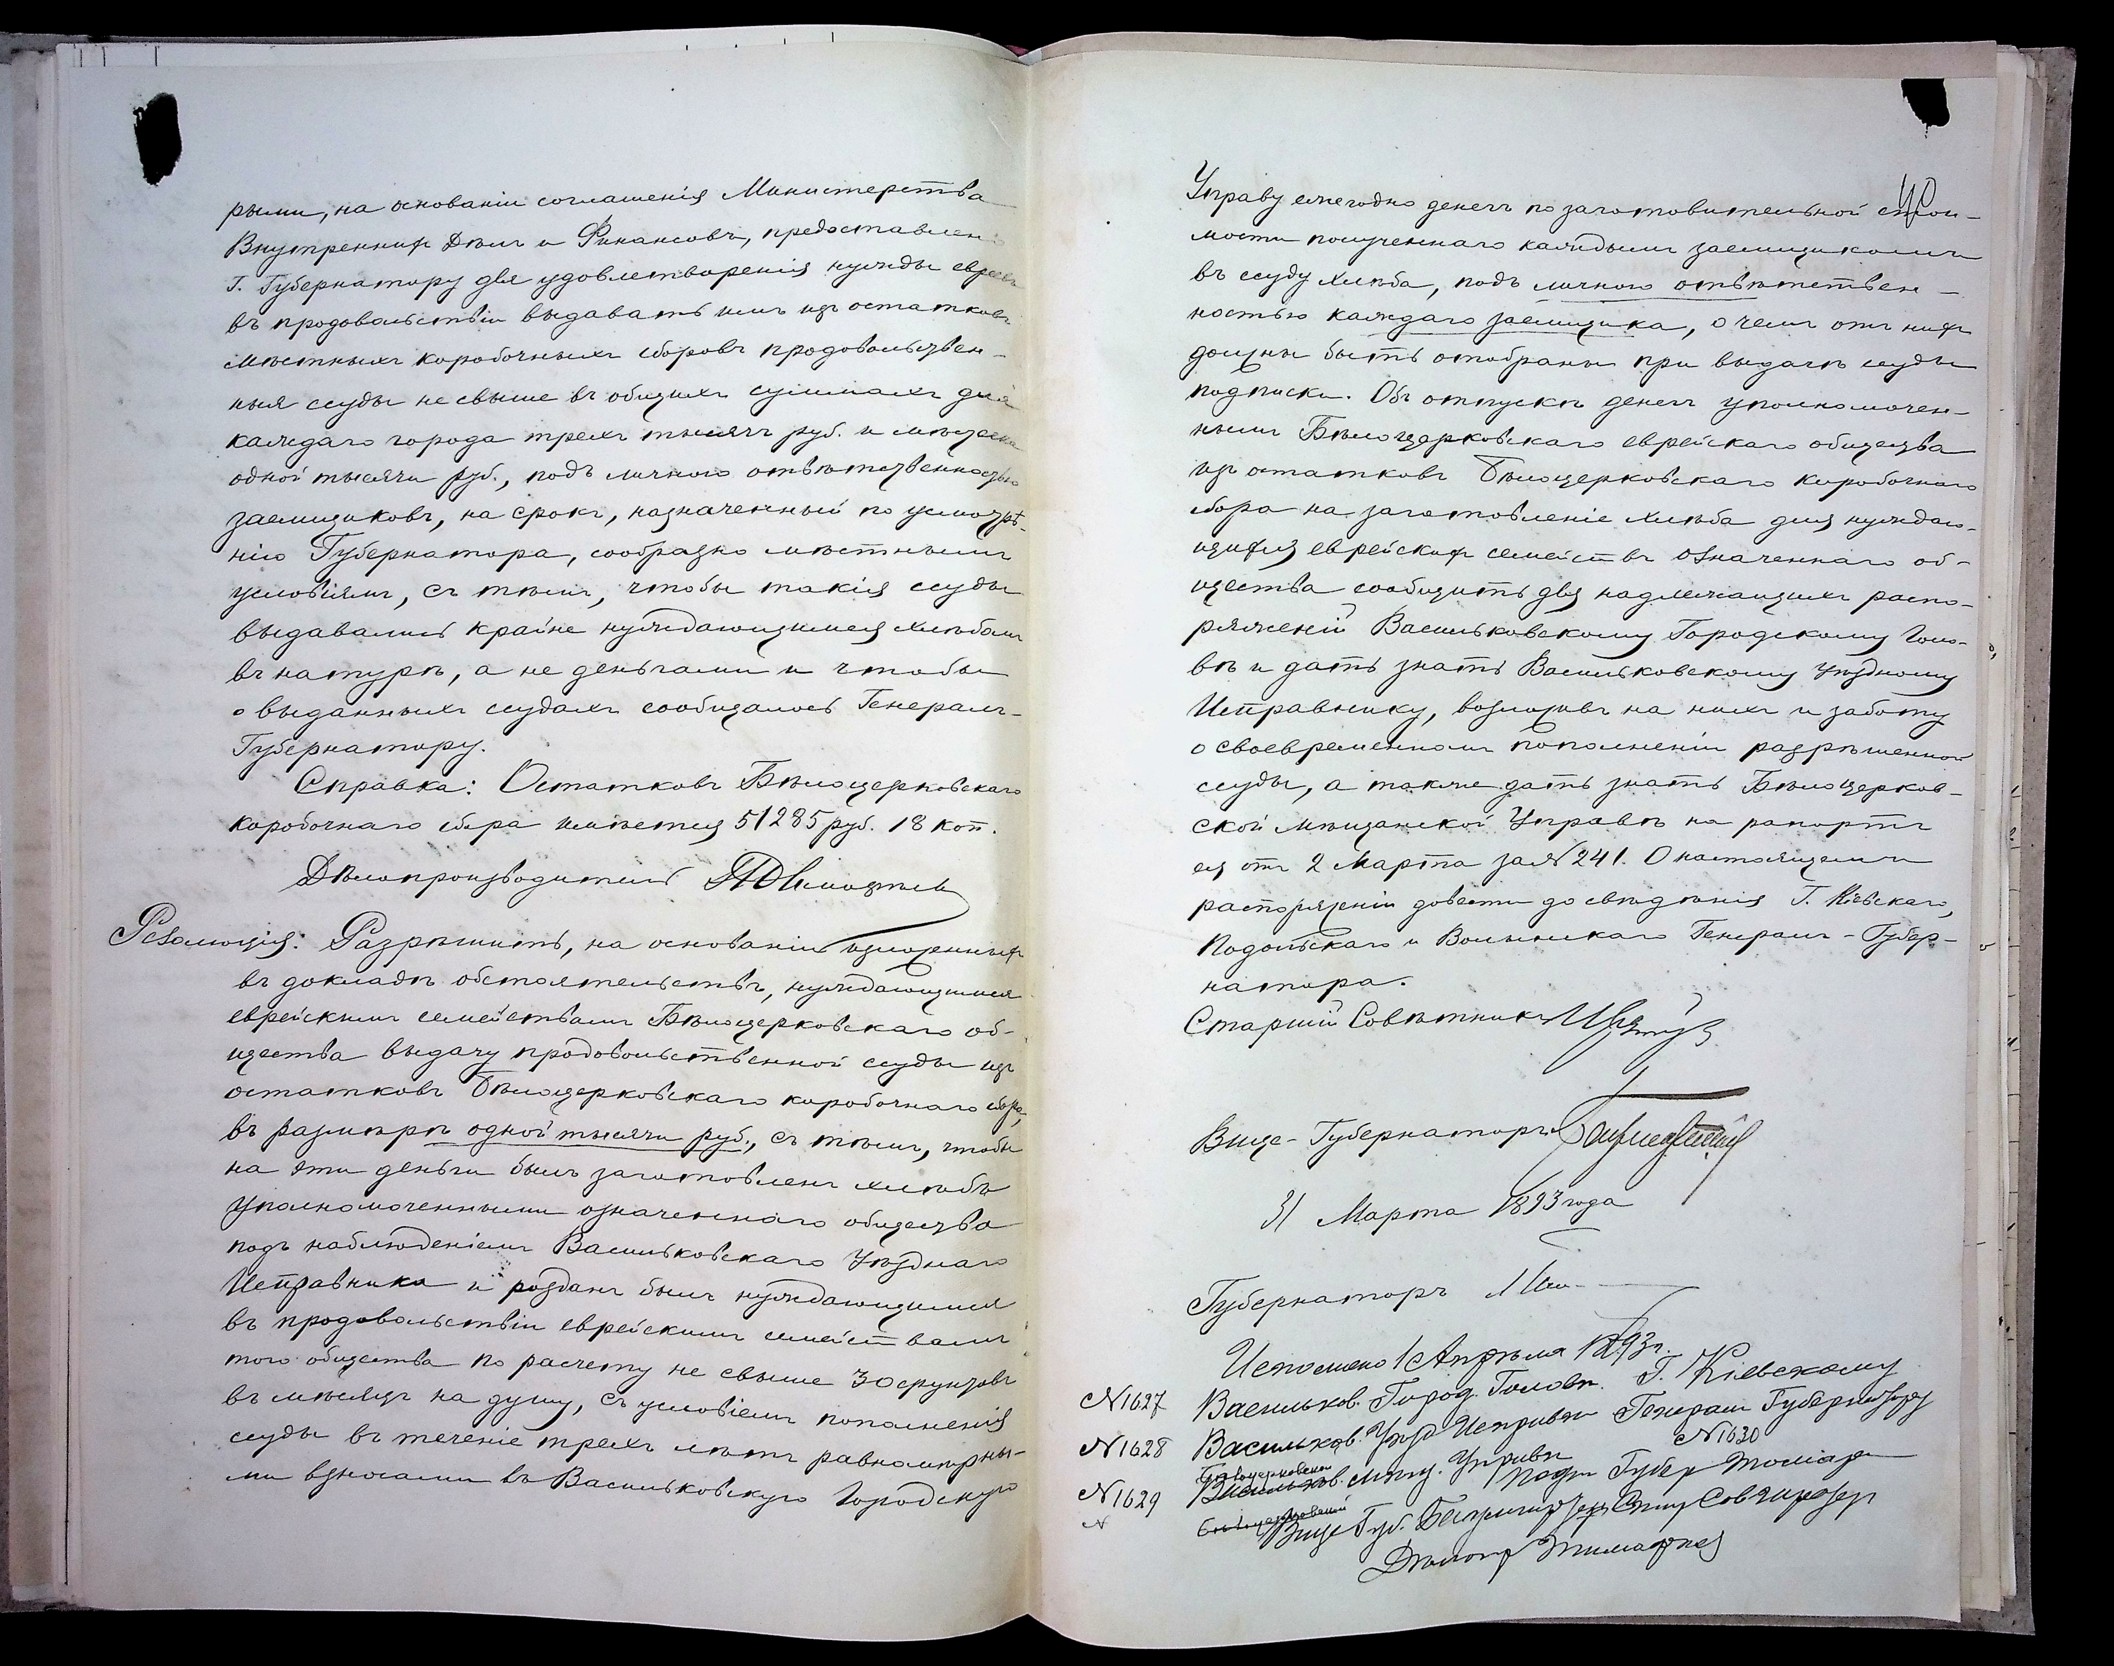 рыми, на основаніи соглашенія Министерства
Внутреннихъ Дѣлъ и Финансовъ, предоставлено
Г. Губернатору для удовлетворенія нужды евреевъ
въ продовольствіи выдавать имъ изъ остатковъ
мѣстныхъ коробочныхъ сборовъ продовольствен-
ныя ссуды не свыше въ общихъ суммахъ для
каждаго города трехъ тысячъ руб. и мѣстечка
одной тысячи руб., подъ личною отвѣтственностью
заемщиковъ, на срокъ, назначенный по усмотрѣ-
нію Губернатора, сообразно мѣстнымъ
условіямъ, съ тѣмъ, чтобы такія ссуды
выдавались крайне нуждающимся хлѣбомъ
въ натурѣ, а не деньгами и чтобы
о выданныхъ ссудахъ сообщалось Генералъ-
Губернатору.
Справка: Остатковъ Бѣлоцерковскаго
коробочнаго сбора имѣется 51285 руб. 18 коп.
Дѣлопроизводитель
Резолюція: Разрѣшить, на основаніи изложенныхъ
въ докладѣ обстоятельствъ, нуждающимся
еврейскимъ семействамъ Бѣлоцерковскаго об-
щества выдачу продовольственной ссуды изъ
остатковъ Бѣлоцерковскаго коробочнаго сбора,
въ размѣрѣ одной тысячи руб., съ тѣмъ, чтобы
на эти деньги былъ заготовленъ хлѣбъ
уполномоченными означеннаго общества
подъ наблюденіемъ Васильковскаго Уѣзднаго
Исправника и розданъ былъ нуждающимся
въ продовольствіи еврейскимъ семействамъ
того общества по расчету не свыше 30 фунтовъ
въ мѣсяцъ на душу, съ условіемъ пополненія
ссуды въ теченіе трехъ лѣтъ равномѣрны-
ми взносами въ Васильковскую Городскую
40
Управу ежегодно денегъ по заготовительной стои-
мости полученнаго каждымъ заемщикомъ
въ ссуду хлѣба, подъ личною отвѣтствен-
ностью каждаго заемщика, о чемъ отъ нихъ
должны быть отобраны при выдачѣ ссуды
подписки. Объ отпускѣ денегъ уполномочен-
нымъ Бѣлоцерковскаго еврейскаго общества
изъ остатковъ Бѣлоцерковскаго коробочнаго
сбора на заготовленіе хлѣба для нуждаю-
щихся еврейскихъ семействъ означеннаго об-
щества сообщить для надлежащихъ распо-
ряженій Васильковскому Городскому Голо-
вѣ и дать знать Васильковскому Уѣздному
Исправнику, возложивъ на нихъ и заботу
о своевременномъ пополненіи разрѣшенной
ссуды, а также дать знать Бѣлоцерков-
ской мѣщанской Управѣ на рапортъ
ея отъ 2 Марта за № 241. О настоящемъ
распоряженіи довести до свѣдѣнія Г. Кіевскаго,
Подольскаго и Волынскаго Генералъ-Губер-
натора.
Старшій Совѣтникъ
Вице-Губернаторъ
31 Марта 1893 года
Губернаторъ
Исполнено 1 Апрѣля 1893 г.
№ 1627 Васильков. Город. Головѣ. Г. Кіевскому
№ 1628 Васильков. Уѣзд Исправн Генералъ Губернатору
№ 1630
Бѣлоцерковской
№ 1629 Васильков. мѣщ. Управѣ
Подп Губер Томара
Вице Губ.
Дѣлопр